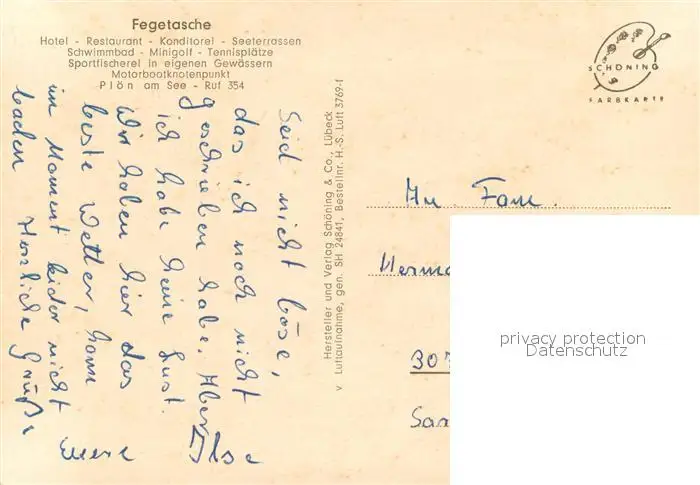 Fegetasche
Hotel - Restaurant - Konditorei - Seeterrassen
Schwimmbad - Minigolf - Tennisplätze
Sportfischerei in eigenen Gewässern
Motorbootknotenpunkt
Plön am See - Ruf 354
SCHÖNING
FARBKARTE
Seid nicht böse,
das ich noch nicht
geschrieben habe. Aber
ich habe keine Lust.
Wir haben hier das
beste Wetter, kann
im Moment leider nicht
baden Herzliche Grüße
Euere Ilse
Hersteller und Verlag Schöning & Co., Lübeck
v Luftaufnahme, gen. SH 24841, Bestellnr. H.-S. Luft 3769-f
An Fam.
Herma
307
privacy protection
Datenschutz